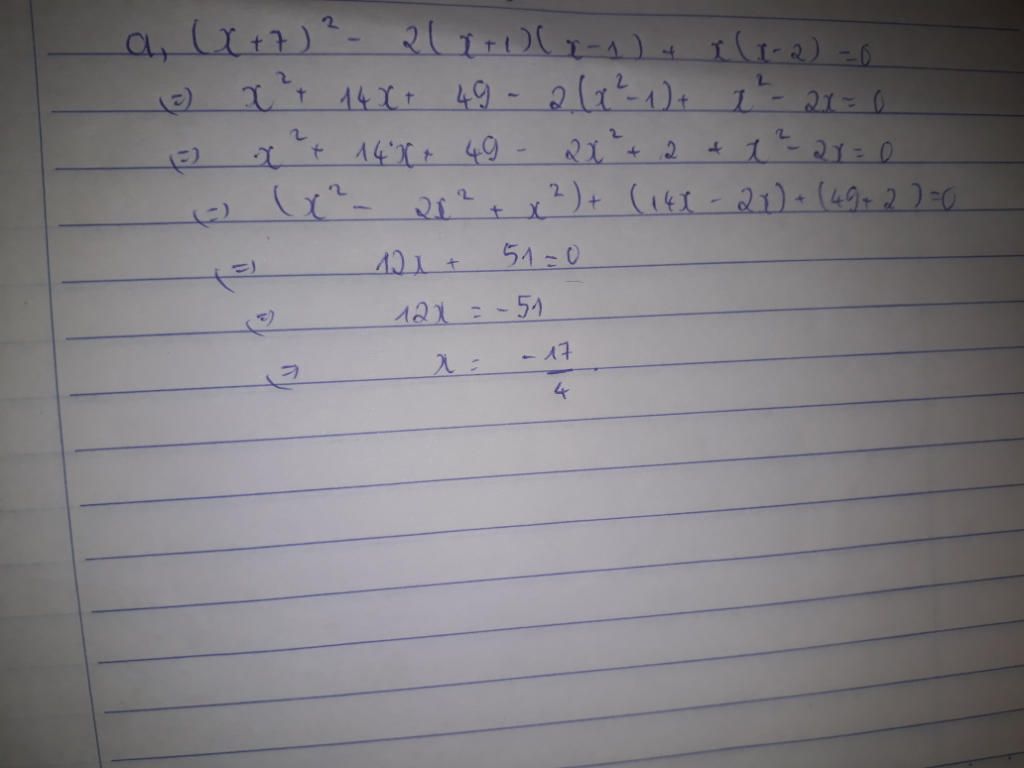 a, (x+7)² - 2(x+1)(x-1) + x(x-2) =0
(=) x² + 14x + 49 - 2(x²-1) + x² - 2x = 0
(=) x² + 14x + 49 - 2x² + 2 + x² - 2x = 0
(=) (x² - 2x² + x²) + (14x - 2x) + (49+2) =0
(=) 12x + 51 = 0
(=) 12x = -51
(=) x = -17/4